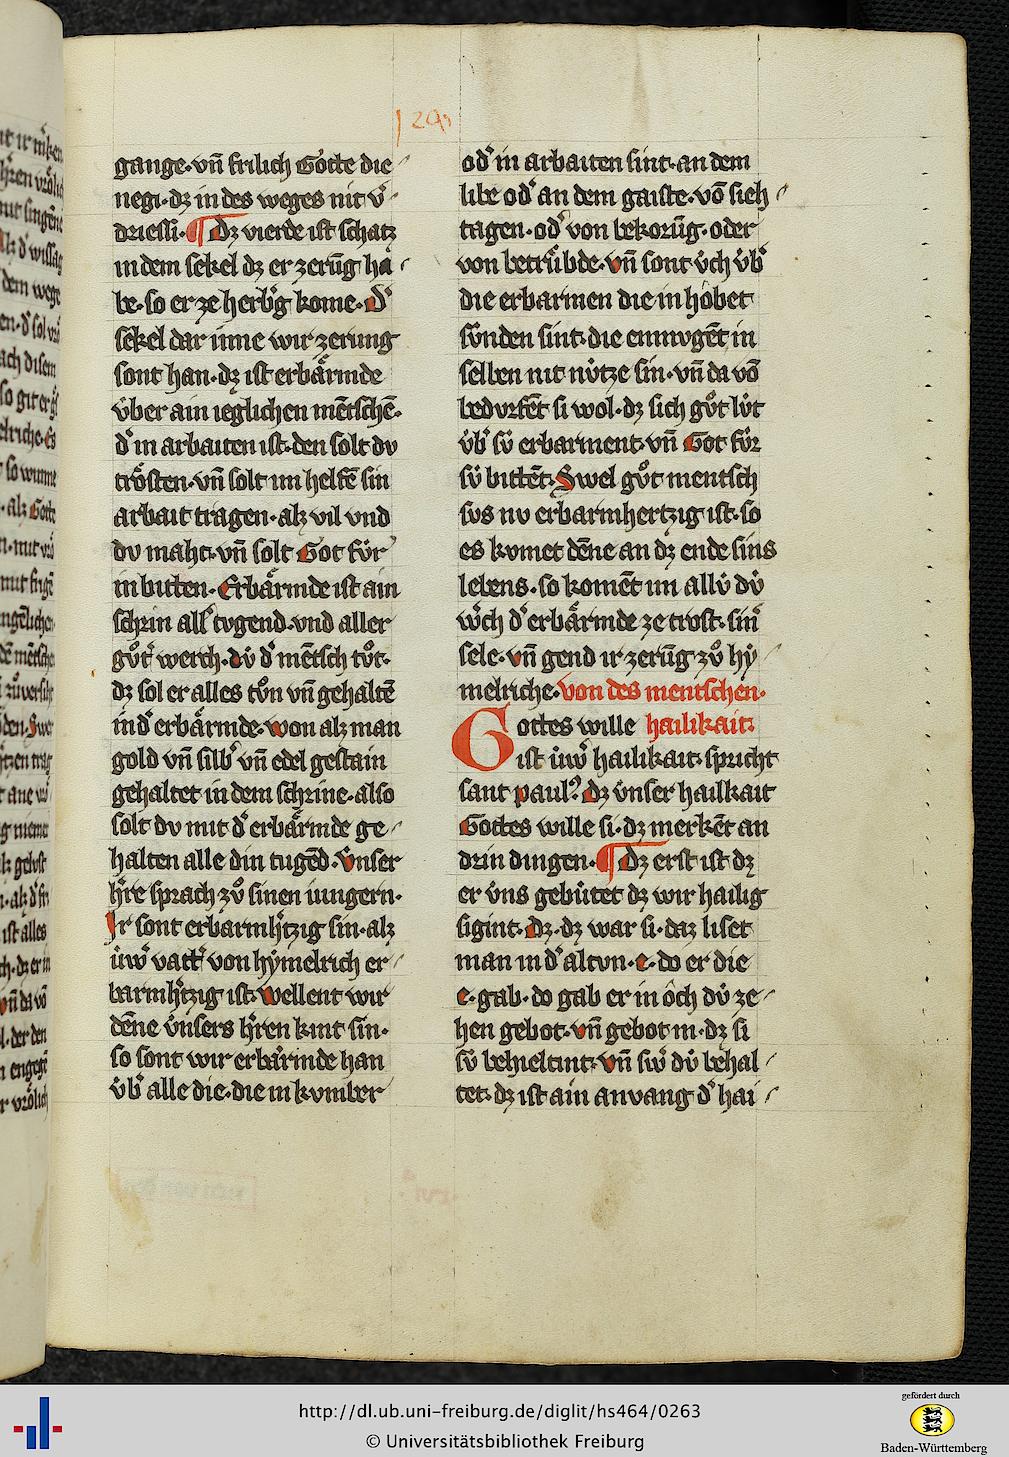 129
gange·vn̄ frilich Gotte die
negi·dz in des weges nit v̓
driessi·¶Dz vierde ist schatz
in dem sekel dz er zerūg ha
be·so er ze herb̓g kome·D̓
sekel dar inne wir zerung
sont han·dz ist erbärmde
v̇ber ain ieglichen mētschē·
d̓ in arbaiten ist·den solt dv
trösten·vn̄ solt im helfē sin
arbait tragen·alz vil vnd
dv maht·vn̄ solt Got fv̇r
in bitten·Erbärmde ist ain
schrin all̓ tvgend·vnd aller
gůt̓ werch·dv̇ d̓ mētsch tůt·
dz sol er alles tůn vn̄ gehaltē
in d̓ erbärmde·won alz man
gold vn̄ silb̓ vn̄ edel gestain
gehaltet in dem schrine·also
solt dv mit d̓ erbärmde ge
halten alle din tugēd·Vnser
h̓re sprach zů sinen iungern·
Ir sont erbarmh̓tzig sin·alz
u̇w̓ vatt̓ von hẏmelrich er
barmh̓tzig ist·Wellent wir
dēne v̇nsers h̓ren kint sin·
so sont wir erbärmde han
v̇b̓ alle die·die in kvmber
od̓ in arbaiten sint·an dem
libe od̓ an dem gaiste·vō sieh
tagen·od̓ von bekorūg·oder
von betrübde·vn̄ sont v̇ch v̇b̓
die erbarmen die in hŏbet
sv̇nden sint·die enmvgēt in
selben nit nv̇tze sin·vn̄ da vō
bedvrfēt si wol·dz sich gůt lv̇t
v̇b̓ sv̇ erbarment·vn̄ Got fv̇r
sv̇ bittēt·Swel gůt mentsch
svs nv erbarmhertzig ist·so
es kvmet dēne an dz ende sins
lebens·so komēt im allv̇ dv̇
w̓ch d̓ erbärmde ze trost·sin̓
sele·vn̄ gend ir zerūg zů hẏ
melriche·von des mentschen·
Gottes wille hailikait·
ist u̇w̓ hailikait·spricht
sant paulꝰ·Dz v̇nser hailkait
Gottes wille si·dz merkēt an
drin dingen·¶Dz erst ist dz
er v̇ns gebu̇tet dz wir hailig
sigint·Dz·dz war si·daz liset
man in d̓ altvn·e·do er die
e·gab·do gab er in ŏch dv̇ ze
hen gebot·vn̄ gebot in·dz si
sv̇ behieltint·vn̄ sw̓ dv̇ behal
tet·dz ist ain anvang d̓ hai
http://dl.ub.uni-freiburg.de/diglit/hs464/0263
© Universitätsbibliothek Freiburg
gefördert durch
Baden-Württemberg